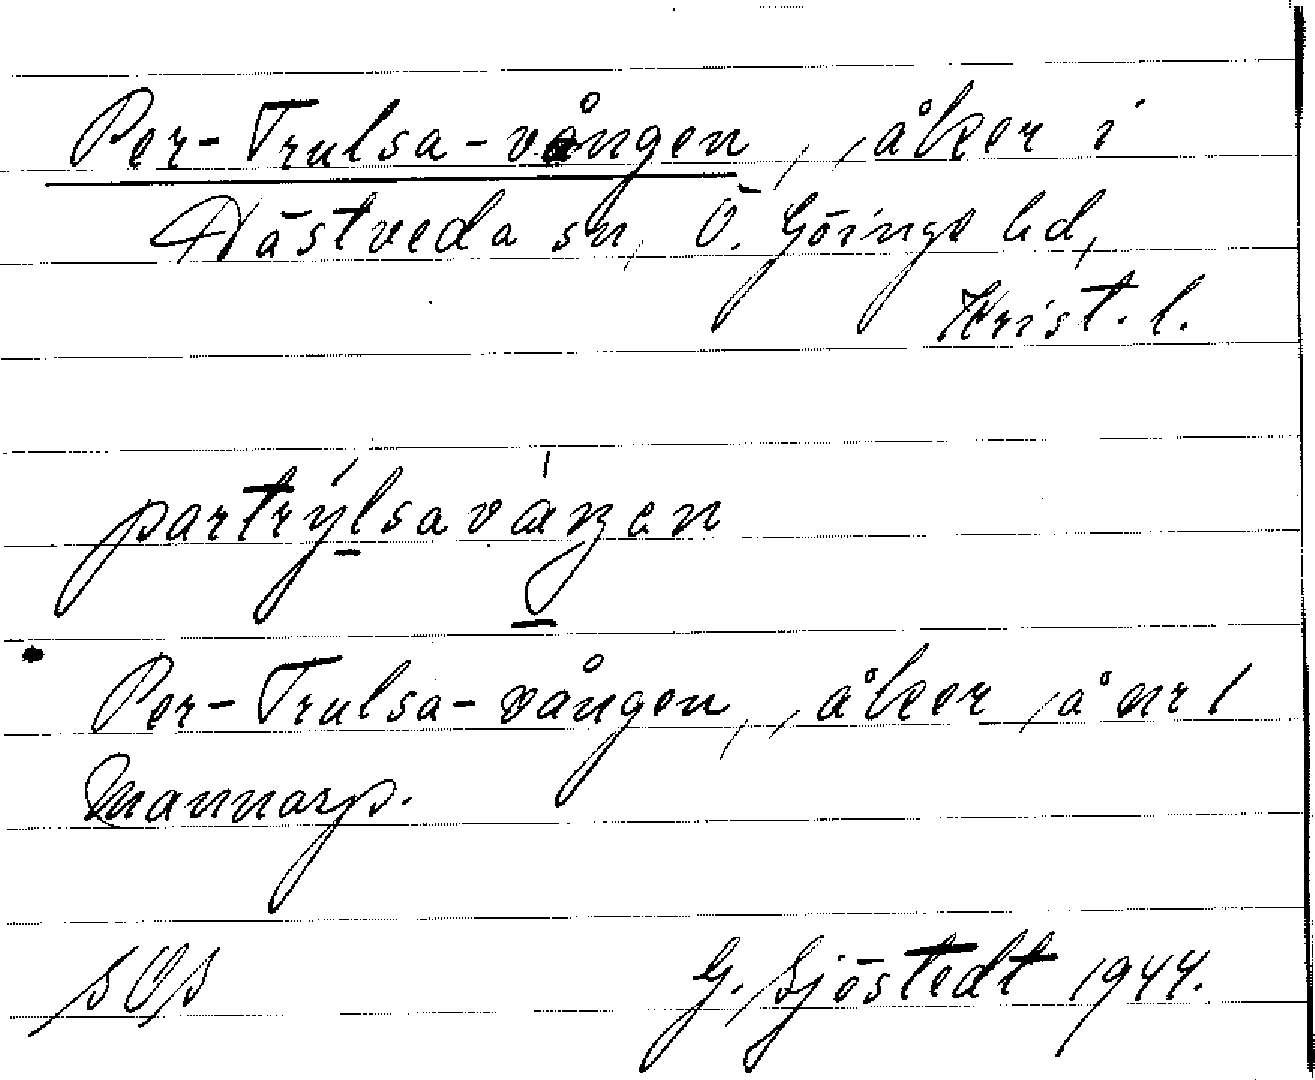 Per-Trulsa-vången, åker i
Nästveda sn, Ö. Göinge hd,
Krist. l.
partrýlsavåŋen
Per-Trulsa-vången, åker å nr 1
Mannarp.
G. Sjöstedt 1944.